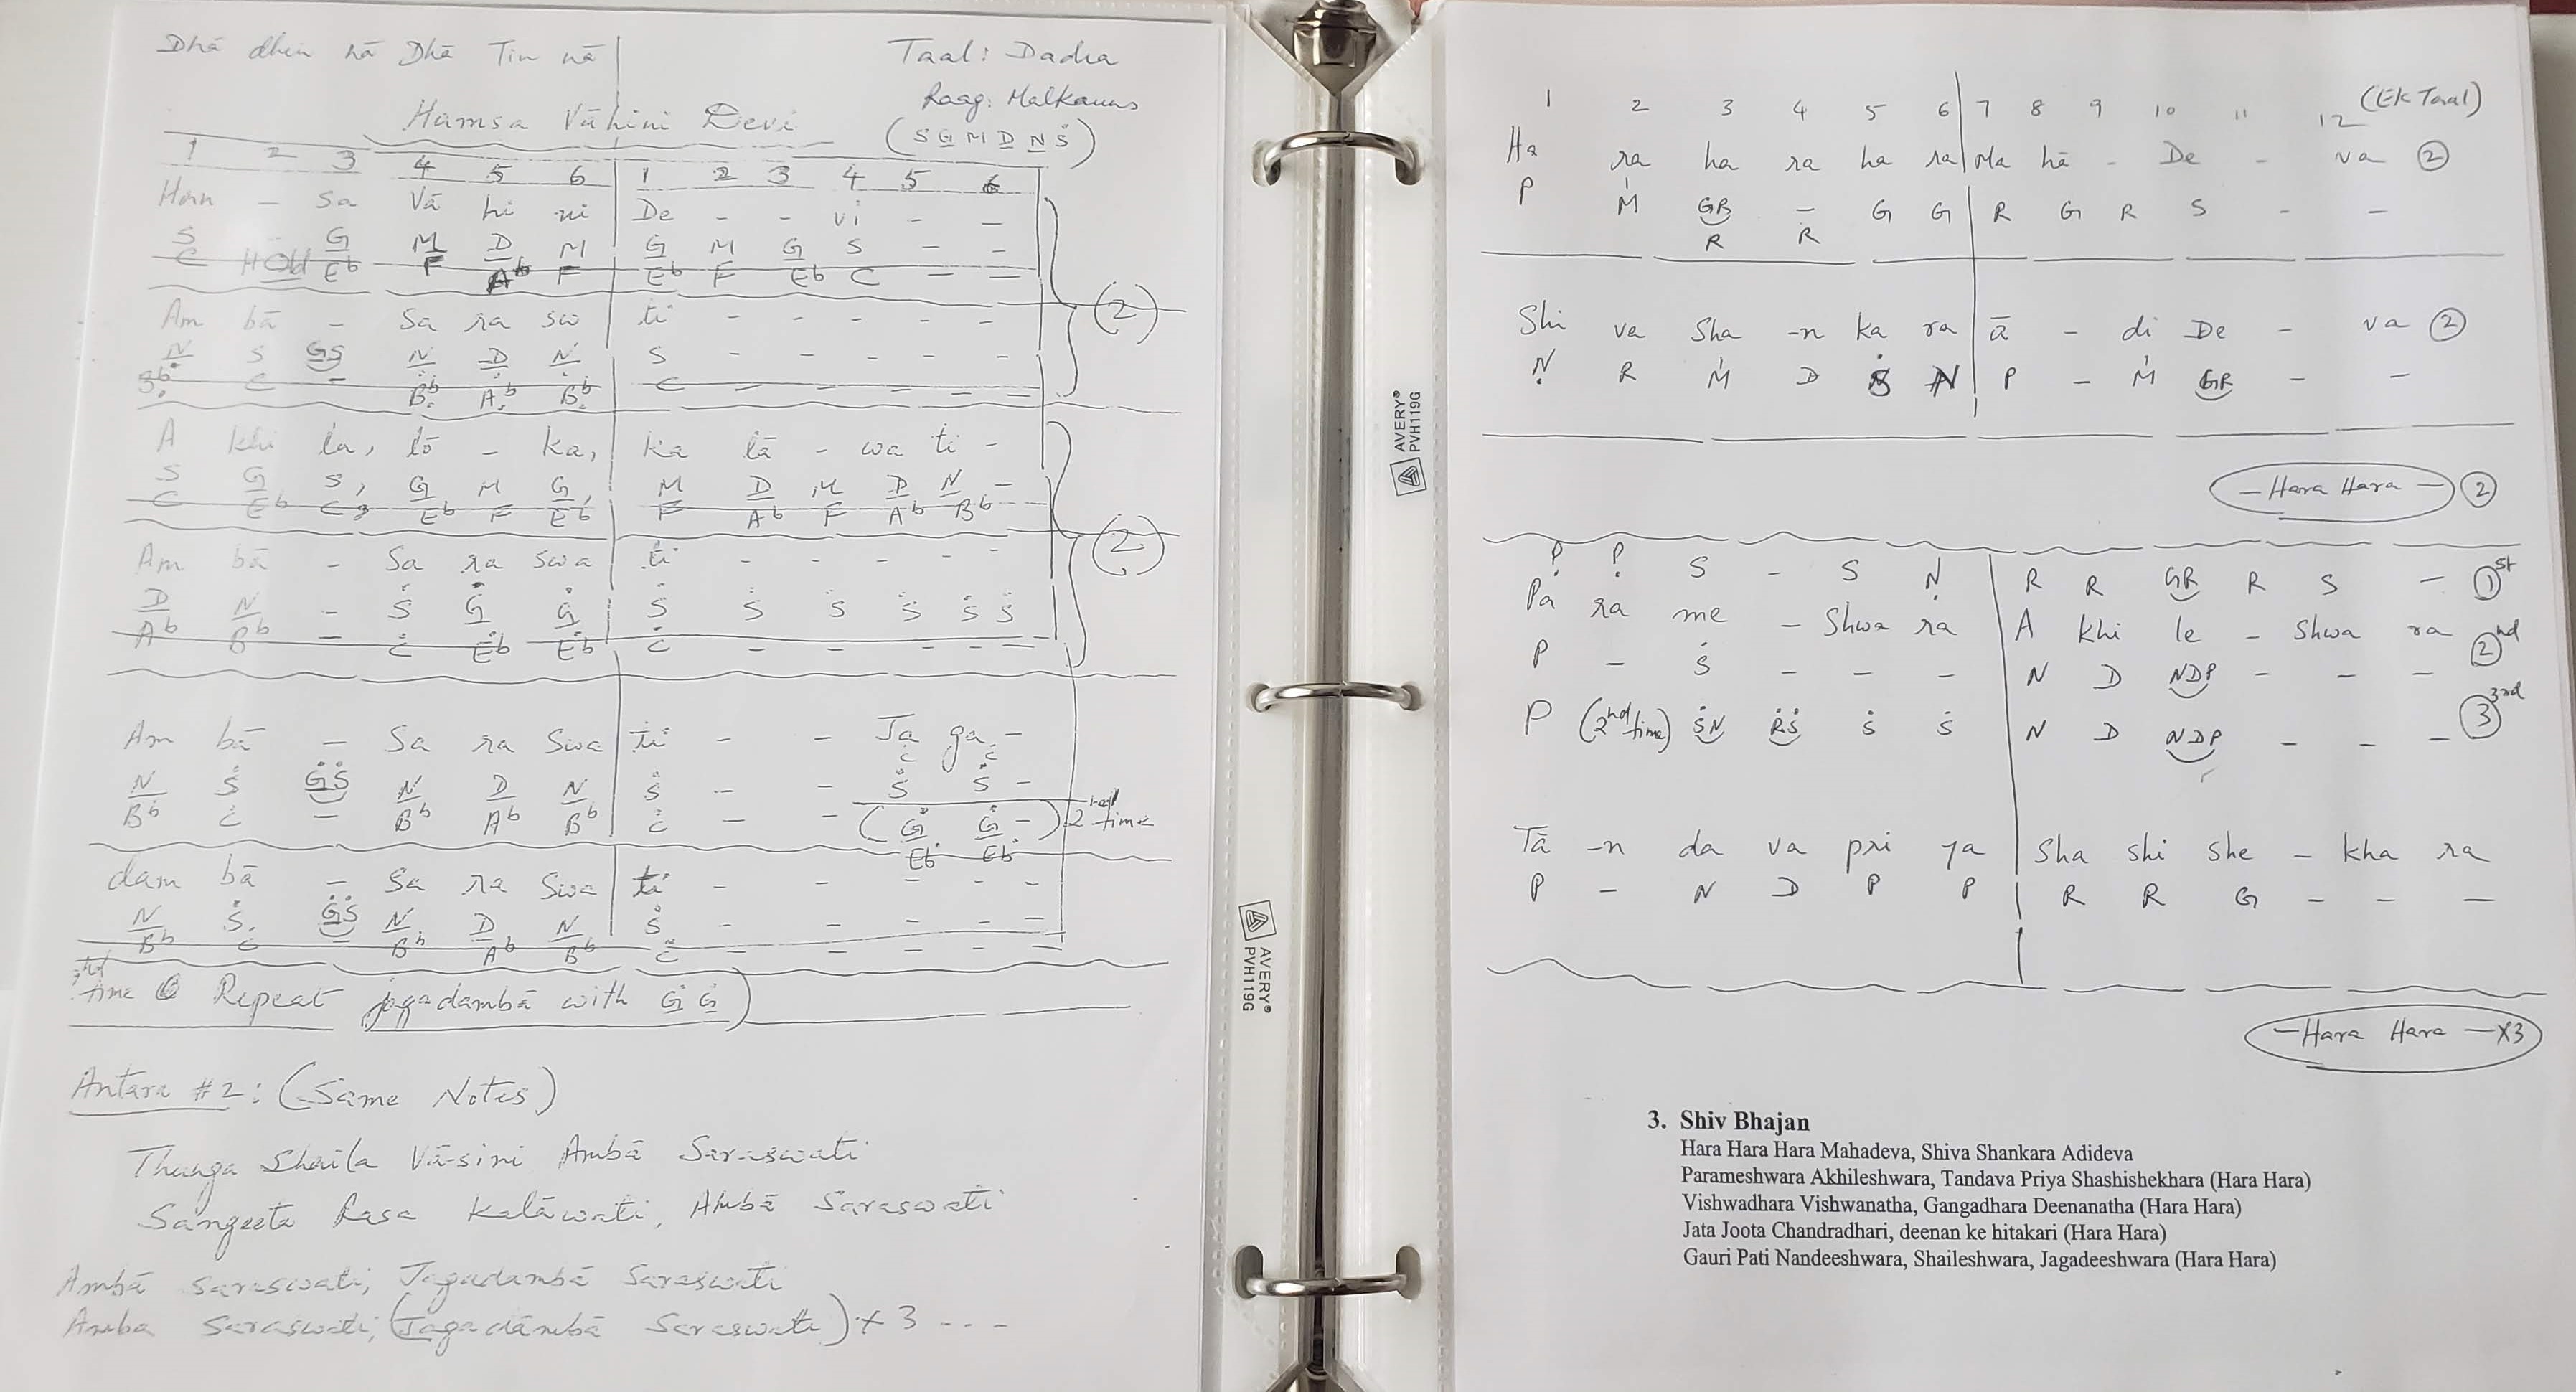 Dhā dhin nā Dhā Tin nā
Taal: Dadra
Raag: Malkauns
Hamsa Vāhini Devi
(S G̲ M D̲ N̲ Ṡ)
1 2 3 4 5 6 | 1 2 3 4 5 6
Ham - sa Vā hi ni | De - - vi - -
S - G̲ M D̲ M | G̲ M G̲ S - -
C Hold Eb F Ab F | Eb F Eb C - -
Am bā - Sa ra sw | ti - - - - -
Ṇ̲ S G̲S Ṇ̲ Ḍ̲ Ṇ̲ | S - - - - -
Bb. C - Bb. Ab. Bb. | C - - - - -
(2)
A khi la, lō - ka, | ka lā - wa ti -
S G̲ S, G̲ M G̲, | M D̲ M D̲ N̲ -
C Eb C, Eb F Eb, | F Ab F Ab Bb
Am bā - Sa ra swa | ti - - - - -
D̲ N̲ - Ṡ Ġ̲ Ġ̲ | Ṡ Ṡ Ṡ Ṡ Ṡ Ṡ
Ab Bb - Ċ Ėb Ėb | Ċ - - - - -
(2)
Am bā - Sa ra Swa | ti - - Ja ga -
C C
N̲ Ṡ Ġ̲Ṡ N̲ D̲ N̲ | Ṡ - - Ṡ Ṡ -
Bb Ċ - Bb Ab Bb | Ċ - - (Ġ̲ Ġ̲ -) 2nd time
Eb Eb
dam bā - Sa ra Swa | ti - - - - -
N̲ Ṡ Ġ̲Ṡ N̲ D̲ N̲ | Ṡ - - - - -
Bb Ċ - Bb Ab Bb | Ċ - - - - -
time Repeat jagadambā with Ġ̲ Ġ̲)
Antara #2: (Same Notes)
Thunga Shaila Vā-sini Ambā Saraswati
Sangeeta Rasa Kalāwati, Ambā Saraswati
Ambā Saraswati, Jagadambā Saraswati
Amba Saraswati, (Jagadāmbā Saraswati) x 3 - - -
AVERY®
PVH119G
AVERY®
PVH119G
1 2 3 4 5 6 | 7 8 9 10 11 12 (Ek Taal)
Ha ra ha ra ha ra | Ma hā - De - va (2)
P Ḿ GR - G G | R G R S - -
R R
Shi va Sha -n ka ra | ā - di De - va (2)
Ṇ R Ḿ D Ṡ N | P - Ḿ GR - -
- Hara Hara - (2)
Ṗ Ṗ S - S Ṇ | R R GR R S - 1st
Pa ra me - Shwa ra | A khi le - Shwa ra
P - Ṡ - - - | N D NDP - - - 2nd
P (2nd time) ṠN ṘṠ Ṡ Ṡ | N D NDP - - - 3rd
Tā -n da va pri ya | Sha shi she - kha ra
P - N D P P | R R G - - -
- Hara Hara - X3
3. Shiv Bhajan
Hara Hara Hara Mahadeva, Shiva Shankara Adideva
Parameshwara Akhileshwara, Tandava Priya Shashishekhara (Hara Hara)
Vishwadhara Vishwanatha, Gangadhara Deenanatha (Hara Hara)
Jata Joota Chandradhari, deenan ke hitakari (Hara Hara)
Gauri Pati Nandeeshwara, Shaileshwara, Jagadeeshwara (Hara Hara)